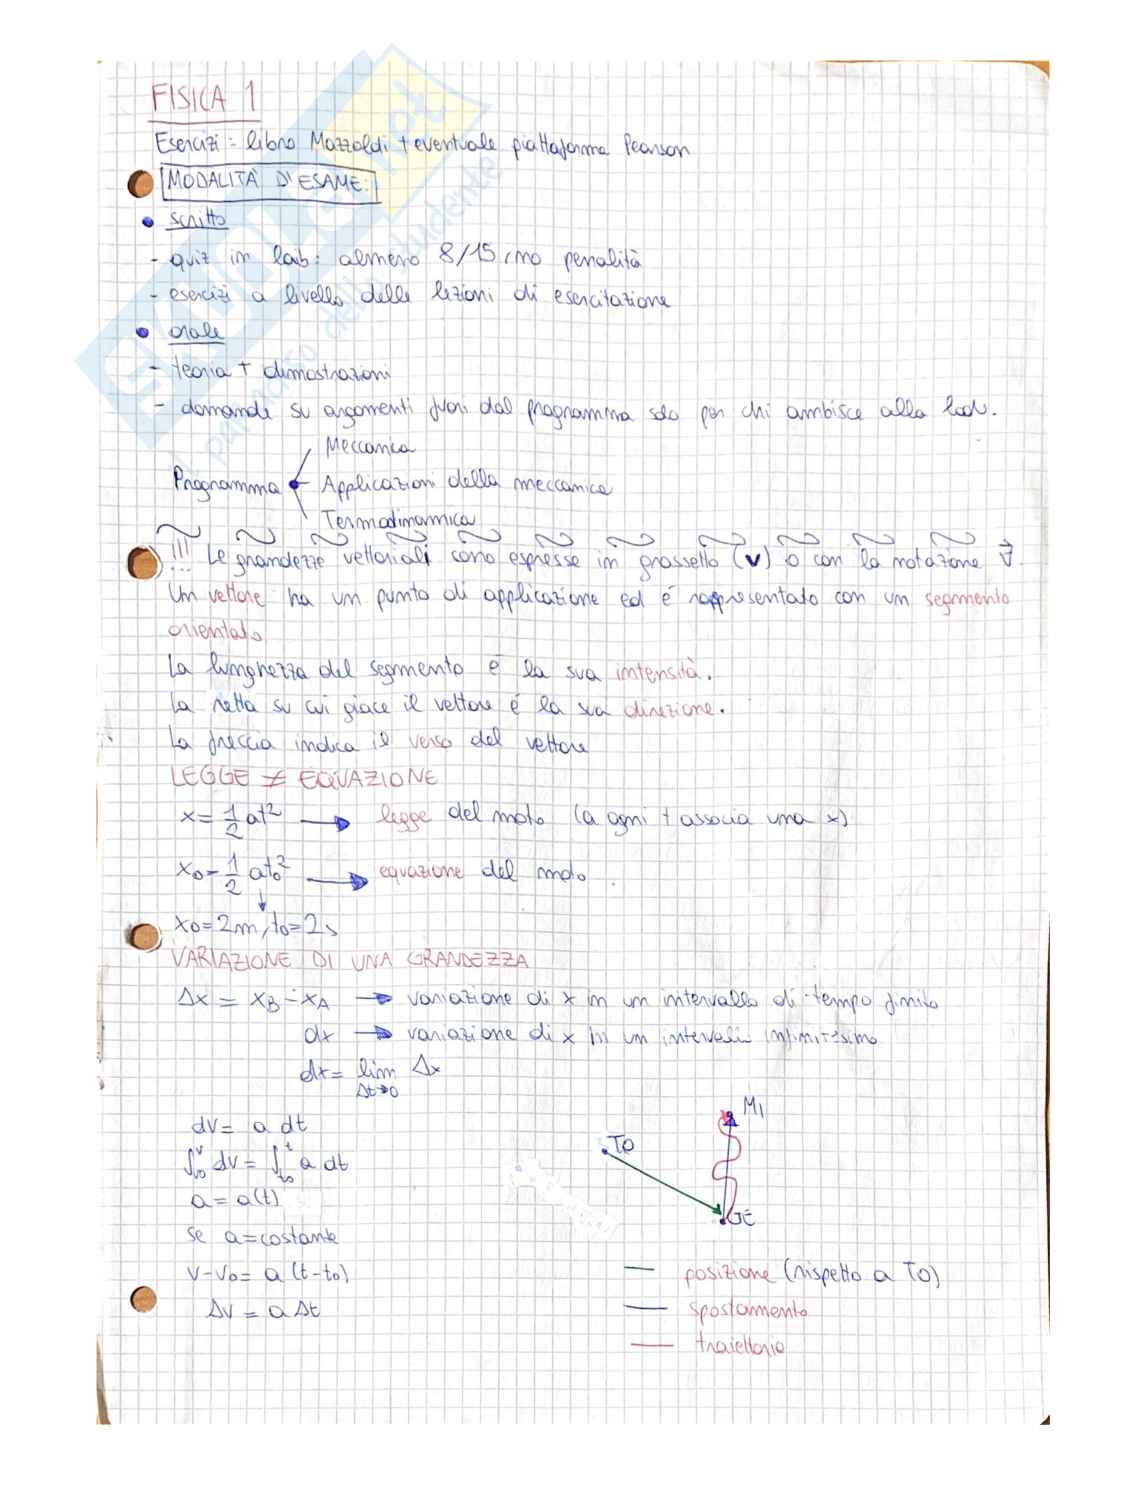 FISICA 1
Esercizi: libro Mazzoldi + eventuale piattaforma Pearson
MODALITÀ D'ESAME:
scritto
- quiz in lab: almeno 8/15, no penalità
- esercizi a livello delle lezioni di esercitazione
orale
- teoria + dimostrazioni
- domande su argomenti fuori dal programma solo per chi ambisce alla lode.
Meccanica
Programma Applicazioni della meccanica
Termodinamica
!!! Le grandezze vettoriali sono espresse in grassetto (v) o con la notazione v⃗.
Un vettore ha un punto di applicazione ed é rappresentato con un segmento
orientato.
La lunghezza del segmento é la sua intensità.
La retta su cui giace il vettore é la sua direzione.
La freccia indica il verso del vettore
LEGGE ≠ EQUAZIONE
x = 1/2 at² → legge del moto (a ogni t associa una x)
x0 = 1/2 at0² → equazione del moto.
↓
x0=2m, t0=2s
VARIAZIONE DI UNA GRANDEZZA
Δx = xB - xA → variazione di x in un intervallo di tempo finito
dx → variazione di x in un intervallo infinitesimo
dx = lim Δx
Δt→0
dv = a dt
∫v0^v dv = ∫t0^t a dt
a = a(t)
se a=costante
v-v0 = a (t-t0)
Δv = a Δt
MI
TO
GE
posizione (rispetto a TO)
spostamento
traiettoria
SKUOLA.net
il paradiso dello studente